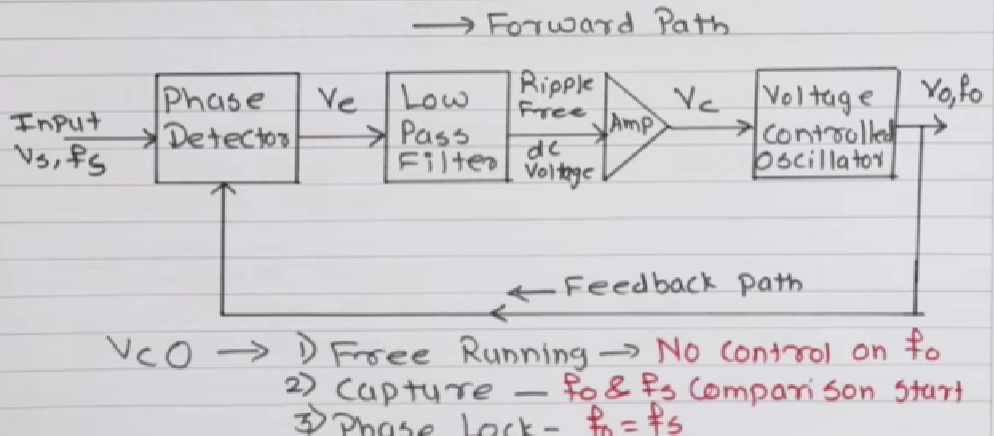 → Forward Path
Input
Vs, fs
Phase
Detector
Ve
Low
Pass
Filter
Ripple
Free
dc
Voltage
Amp
Vc
Voltage
Controlled
Oscillator
Vo, fo
← Feedback path
VCO → 1) Free Running → No control on fo
2) Capture – fo & fs Comparison Start
3) Phase Lock – fo = fs